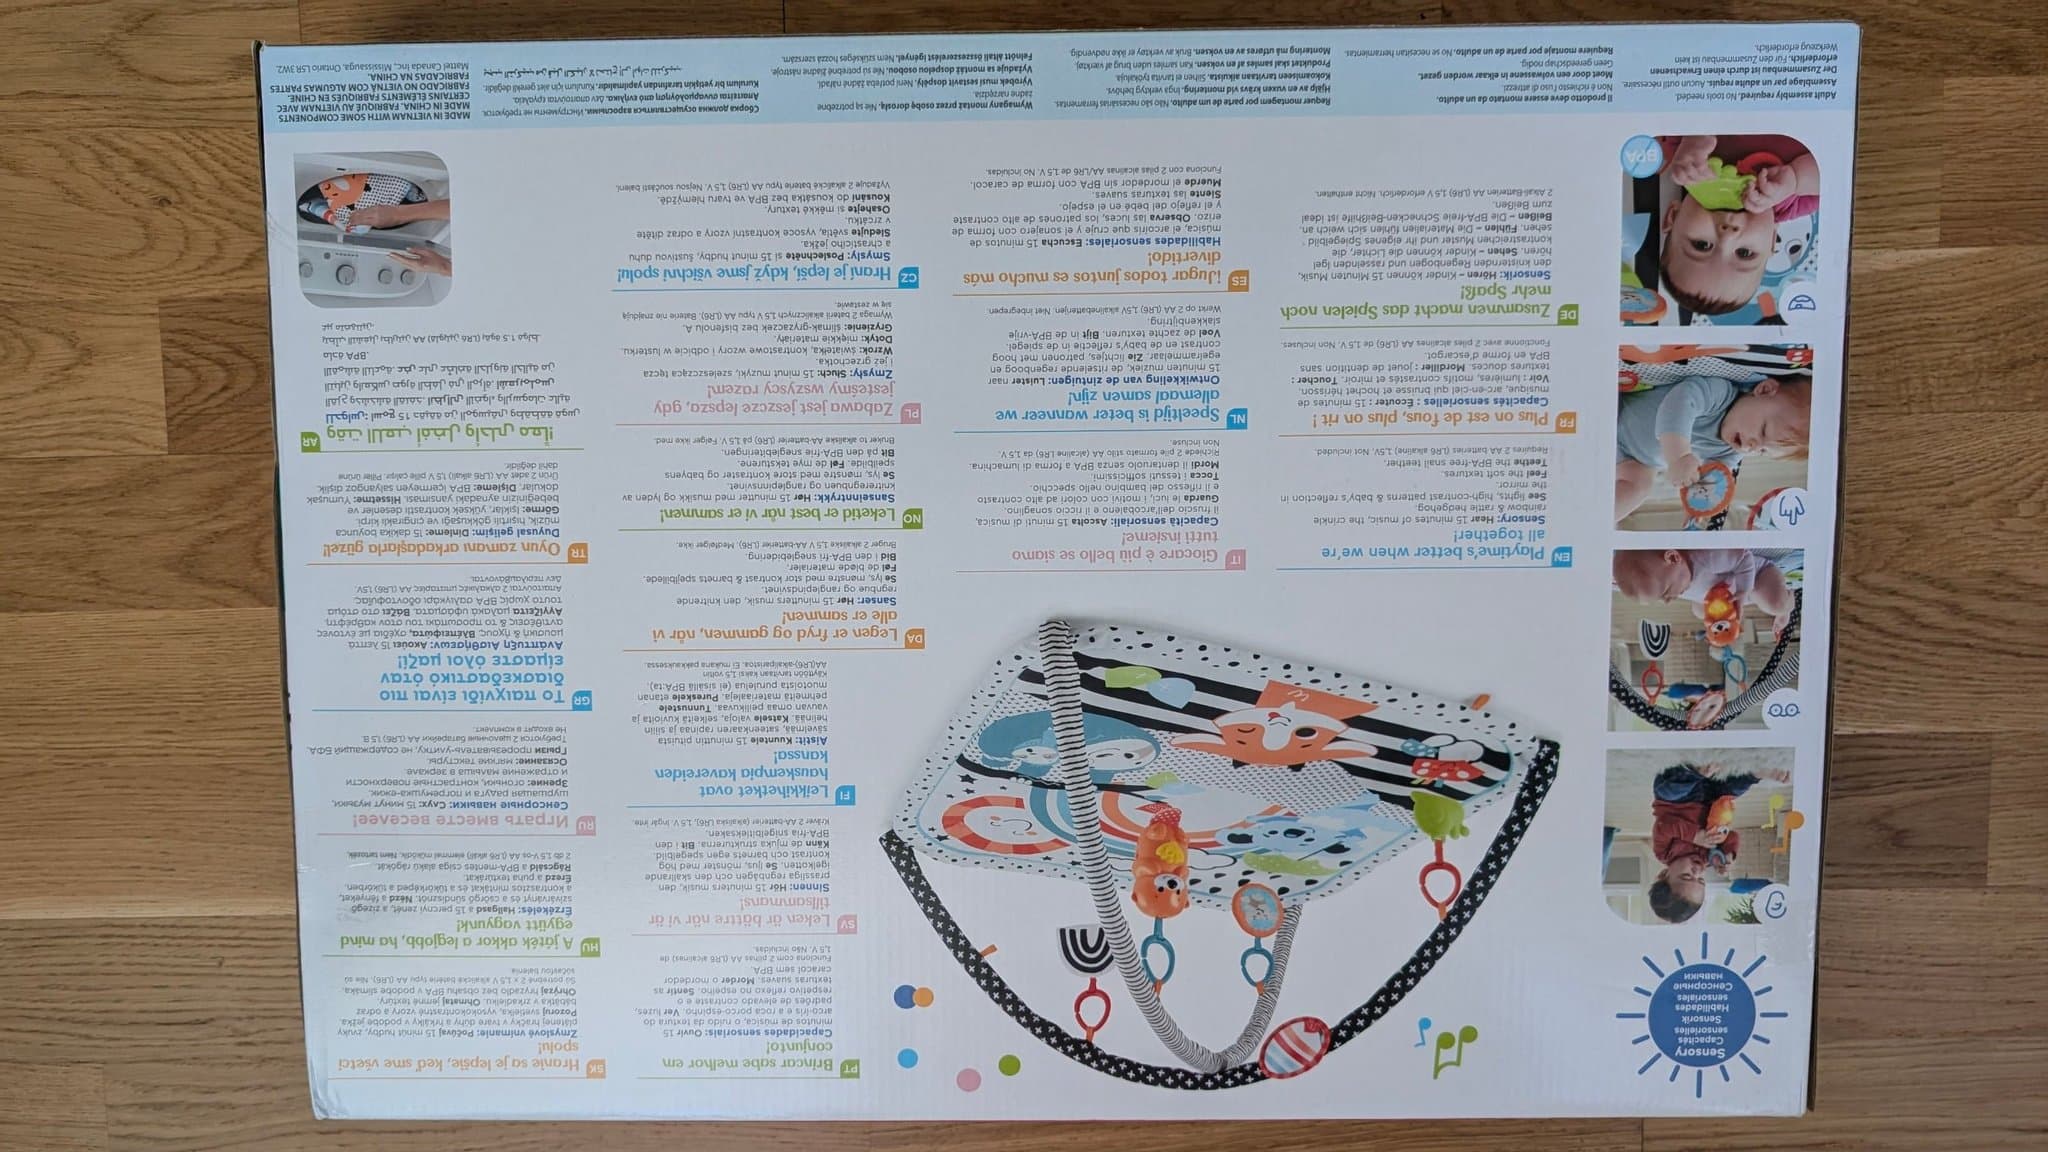 Sensory
Capacités
sensorielles
Sensorik
Habilidades
sensoriales
Сенсорные
навыки
BPA
EN
Playtime's better when we're
all together!
Sensory: Hear 15 minutes of music, the crinkle
rainbow & rattle hedgehog.
See lights, high-contrast patterns & baby's reflection in
the mirror.
Feel the soft textures.
Teethe the BPA-free snail teether.
Requires 2 AA batteries (LR6 alkaline) 1,5V. Not included.
FR
Plus on est de fous, plus on rit !
Capacités sensorielles : Écouter : 15 minutes de
musique, arc-en-ciel qui bruisse et hochet hérisson.
Voir : lumières, motifs contrastés et miroir. Toucher :
textures douces. Mordiller : jouet de dentition sans
BPA en forme d'escargot.
Fonctionne avec 2 piles alcalines AA (LR6) de 1,5 V. Non incluses.
DE
Zusammen macht das Spielen noch
mehr Spaß!
Sensorik: Hören – Kinder können 15 Minuten Musik,
den knisternden Regenbogen und rasselnden Igel
hören. Sehen – Kinder können die Lichter, die
kontrastreichen Muster und ihr eigenes Spiegelbild
sehen. Fühlen – Die Materialien fühlen sich weich an.
Beißen – Die BPA-freie Schnecken-Beißhilfe ist ideal
zum Beißen.
2 Alkali-Batterien AA (LR6) 1,5 V erforderlich. Nicht enthalten.
IT
Giocare è più bello se siamo
tutti insieme!
Capacità sensoriali: Ascolta 15 minuti di musica,
il fruscio dell'arcobaleno e il riccio sonaglino.
Guarda le luci, i motivi con colori ad alto contrasto
e il riflesso del bambino nello specchio.
Tocca i tessuti sofficissimi.
Mordi il dentaruolo senza BPA a forma di lumachina.
Richiede 2 pile formato stilo AA (alcaline LR6) da 1,5 V.
Non incluse.
NL
Speeltijd is beter wanneer we
allemaal samen zijn!
Ontwikkeling van de zintuigen: Luister naar
15 minuten muziek, de ritselende regenboog en
egelrammelaar. Zie lichtjes, patronen met hoog
contrast en de baby's reflectie in de spiegel.
Voel de zachte texturen. Bijt in de BPA-vrije
slakkenbijtring.
Werkt op 2 AA (LR6) 1,5V alkalinebatterijen. Niet inbegrepen.
ES
¡Jugar todos juntos es mucho más
divertido!
Habilidades sensoriales: Escucha 15 minutos de
música, el arcoíris que cruje y el sonajero con forma de
erizo. Observa las luces, los patrones de alto contraste
y el reflejo del bebé en el espejo.
Siente las texturas suaves.
Muerde el mordedor sin BPA con forma de caracol.
Funciona con 2 pilas alcalinas AA/LR6 de 1,5 V. No incluidas.
PT
Brincar sabe melhor em
conjunto!
Capacidades sensoriais: Ouvir 15
minutos de música, o ruído da textura do
arco-íris e a roca porco-espinho. Ver luzes,
padrões de elevado contraste e o
respetivo reflexo no espelho. Sentir as
texturas suaves. Morder o mordedor
caracol sem BPA.
Funciona com 2 pilhas AA (LR6 alcalinas) de
1,5 V. Não incluídas.
SV
Leken är bättre när vi är
tillsammans!
Sinnen: Hör 15 minuters musik, den
prassliga regnbågen och den skallrande
igelkotten. Se ljus, mönster med hög
kontrast och barnets egen spegelbild.
Känn de mjuka strukturerna. Bit i den
BPA-fria snigelbitleksaken.
Kräver 2 AA-batterier (alkaliska LR6), 1,5 V. Ingår inte.
FI
Leikkihetket ovat
hauskempia kavereiden
kanssa!
Aistit: Kuuntele 15 minuutin pituista
sävelmää, sateenkaaren rapinaa ja siilin
helinää. Katsele valoja, selkeitä kuvioita ja
vauvan omaa peilikuvaa. Tunnustele
pehmeitä materiaaleja. Pureskele etanan
muotoista purulelua (ei sisällä BPA:ta).
Käyttöön tarvitaan kaksi 1,5 voltin
AA(LR6)-alkaliparistoa. Ei mukana pakkauksessa.
DA
Legen er fryd og gammen, når vi
alle er sammen!
Sanser: Hør 15 minutters musik, den knitrende
regnbue og ranglepindsvinet.
Se lys, mønstre med stor kontrast & barnets spejlbillede.
Føl de bløde materialer.
Bid i den BPA-fri sneglebidering.
Bruger 2 alkaliske 1,5 V AA-batterier (LR6). Medfølger ikke.
NO
Leketid er best når vi er sammen!
Sanseinntrykk: Hør 15 minutter med musikk og lyden av
knitreregnbuen og ranglepinnsvinet.
Se lys, mønstre med store kontraster og babyens
speilbilde. Føl de mye teksturene.
Bit på den BPA-frie sneglebiteringen.
Bruker to alkaliske AA-batterier (LR6) på 1,5 V. Følger ikke med.
PL
Zabawa jest jeszcze lepsza, gdy
jesteśmy wszyscy razem!
Zmysły: Słuch: 15 minut muzyki, szeleszcząca tęcza
i jeż grzechotka.
Wzrok: światełka, kontrastowe wzory i odbicie w lusterku.
Dotyk: miękkie materiały.
Gryzienie: ślimak-gryzaczek bez bisfenolu A.
Wymaga 2 baterii alkalicznych 1,5 V typu AA (LR6). Baterie nie znajdują
się w zestawie.
CZ
Hraní je lepší, když jsme všichni spolu!
Smysly: Poslechněte si 15 minut hudby, šustivou duhu
a chrastícího ježka.
Sledujte světla, vysoce kontrastní vzory a odraz dítěte
v zrcátku.
Osahejte si měkké textury.
Kousání do kousátka bez BPA ve tvaru hlemýždě.
Vyžaduje 2 alkalické baterie typu AA (LR6) 1,5 V. Nejsou součástí balení.
SK
Hranie sa je lepšie, keď sme všetci
spolu!
Zmyslové vnímanie: Počúvaj 15 minút hudby, zvuky
plátennej hračky v tvare dúhy a hrkálky v podobe ježka.
Pozoruj svetielka, vysokokontrastné vzory a odraz
bábätka v zrkadielku. Ohmataj jemné textúry.
Ohrýzaj hryzadlo bez obsahu BPA v podobe slimáka.
Sú potrebné 2 x 1,5 V alkalické batérie typu AA (LR6). Nie sú
súčasťou balenia
HU
A játék akkor a legjobb, ha mind
együtt vagyunk!
Érzékelés: Hallgasd a 15 percnyi zenét, a zizegő
szivárványt és a csörgő sündisznót. Nézd a fényeket,
a kontrasztos mintákat és a tükörképed a tükörben.
Érezd a puha textúrákat.
Rágcsáld a BPA-mentes csiga alakú rágókát.
2 db 1,5 V-os AA (LR6 alkáli) elemmel működik. Nem tartozék.
RU
Играть вместе веселее!
Сенсорные навыки: Слух: 15 минут музыки,
шуршащая радуга и погремушка-ежик.
Зрение: огоньки, контрастные поверхности
и отражение малыша в зеркале.
Осязание: мягкие текстуры.
Грызи прорезыватель-улитку, не содержащий БФА.
Требуются 2 щелочные батарейки AA (LR6) 1,5 В.
Не входят в комплект.
GR
Το παιχνίδι είναι πιο
διασκεδαστικό όταν
είμαστε όλοι μαζί!
Ανάπτυξη Αισθήσεων: Ακούει 15 λεπτά
μουσική & ήχους. Βλέπει φώτα, σχέδια με έντονες
αντιθέσεις & το προσωπάκι του στον καθρέφτη.
Αγγίζει τα μαλακά υφάσματα. Βάζει στο στόμα
του το χωρίς BPA σαλιγκάρι οδοντοφυΐας.
Απαιτούνται 2 αλκαλικές μπαταρίες AA (LR6) 1,5V.
Δεν περιλαμβάνονται.
TR
Oyun zamanı arkadaşlarla güzel!
Duyusal gelişim: Dinleme: 15 dakika boyunca
müzik, hışırtılı gökkuşağı ve çıngıraklı kirpi.
Görme: Işıklar, yüksek kontrastlı desenler ve
bebeğinizin aynadaki yansıması. Hissetme: Yumuşak
dokular. Dişleme: BPA içermeyen salyangoz dişlik.
Ürün 2 adet AA (LR6 alkali) 1,5 V pille çalışır. Piller ürüne
dahil değildir.
AR
Adult assembly required. No tools needed.
Assemblage par un adulte requis. Aucun outil nécessaire.
Der Zusammenbau ist durch einen Erwachsenen
erforderlich. Für den Zusammenbau ist kein
Werkzeug erforderlich.
Il prodotto deve essere montato da un adulto.
Non è richiesto l'uso di attrezzi.
Moet door een volwassene in elkaar worden gezet.
Geen gereedschap nodig.
Requiere montaje por parte de un adulto. No se necesitan herramientas.
Requer montagem por parte de um adulto. Não são necessárias ferramentas.
Hjälp av en vuxen krävs vid montering. Inga verktyg behövs.
Kokoamiseen tarvitaan aikuista. Siihen ei tarvita työkaluja.
Produktet skal samles af en voksen. Kan samles uden brug af værktøj.
Montering må utføres av en voksen. Bruk av verktøy er ikke nødvendig.
Wymagany montaż przez osobę dorosłą. Nie są potrzebne
żadne narzędzia.
Výrobek musí sestavit dospělý. Není potřeba žádné nářadí.
Vyžaduje sa montáž dospelou osobou. Nie sú potrebné žiadne nástroje.
Felnőtt általi összeszerelést igényel. Nem szükséges hozzá szerszám.
Сборка должна осуществляться взрослыми. Инструменты не требуются.
Απαιτείται συναρμολόγηση από ενήλικα. Δεν απαιτούνται εργαλεία.
Kurulum bir yetişkin tarafından yapılmalıdır. Kurulum için alet gerekli değildir.
MADE IN VIETNAM WITH SOME COMPONENTS
MADE IN CHINA. FABRIQUÉ AU VIETNAM AVEC
CERTAINS ÉLÉMENTS FABRIQUÉS EN CHINE.
FABRICADO NO VIETNÃ COM ALGUMAS PARTES
FABRICADAS NA CHINA.
Mattel Canada Inc., Mississauga, Ontario L5R 3W2.